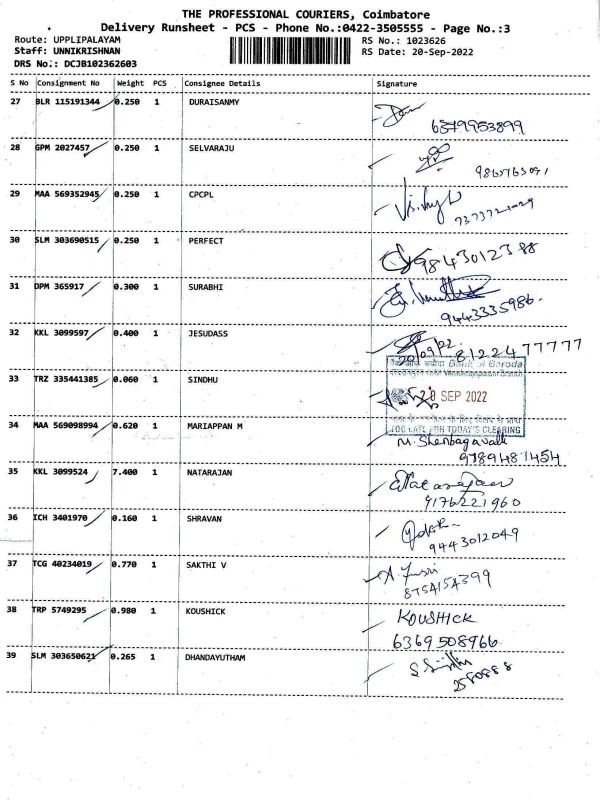 THE PROFESSIONAL COURIERS, Coimbatore
Delivery Runsheet - PCS - Phone No.:0422-3505555 - Page No.:3
Route: UPPLIPALAYAM RS No.: 1023626
Staff: UNNIKRISHNAN RS Date: 20-Sep-2022
DRS No.: DCJB102362603
S No Consignment No Weight PCS Consignee Details Signature
27 BLR 115191344 0.250 1 DURAISANMY
6379953899
28 GPM 2027457 0.250 1 SELVARAJU
29 MAA 569352945 0.250 1 CPCPL
30 SLM 303690515 0.250 1 PERFECT
9843012388
31 DPM 365917 0.300 1 SURABHI
9443335986.
32 KKL 3099597 0.400 1 JESUDASS
20/09/22. 8122477777
33 TRZ 335441385 0.060 1 SINDHU
Bank of Baroda
20 SEP 2022
TOO LATE FOR TODAY'S CLEARING
34 MAA 569098994 0.620 1 MARIAPPAN M
M. Shenbagavalli
9789481454
35 KKL 3099524 7.400 1 NATARAJAN
Natarajan
9176221960
36 ICH 3401970 0.160 1 SHRAVAN
9443012049
37 TCG 40234019 0.770 1 SAKTHI V
8754154399
38 TRP 5749295 0.980 1 KOUSHICK
KOUSHICK
6369508966
39 SLM 303650621 0.265 1 DHANDAYUTHAM
2580888